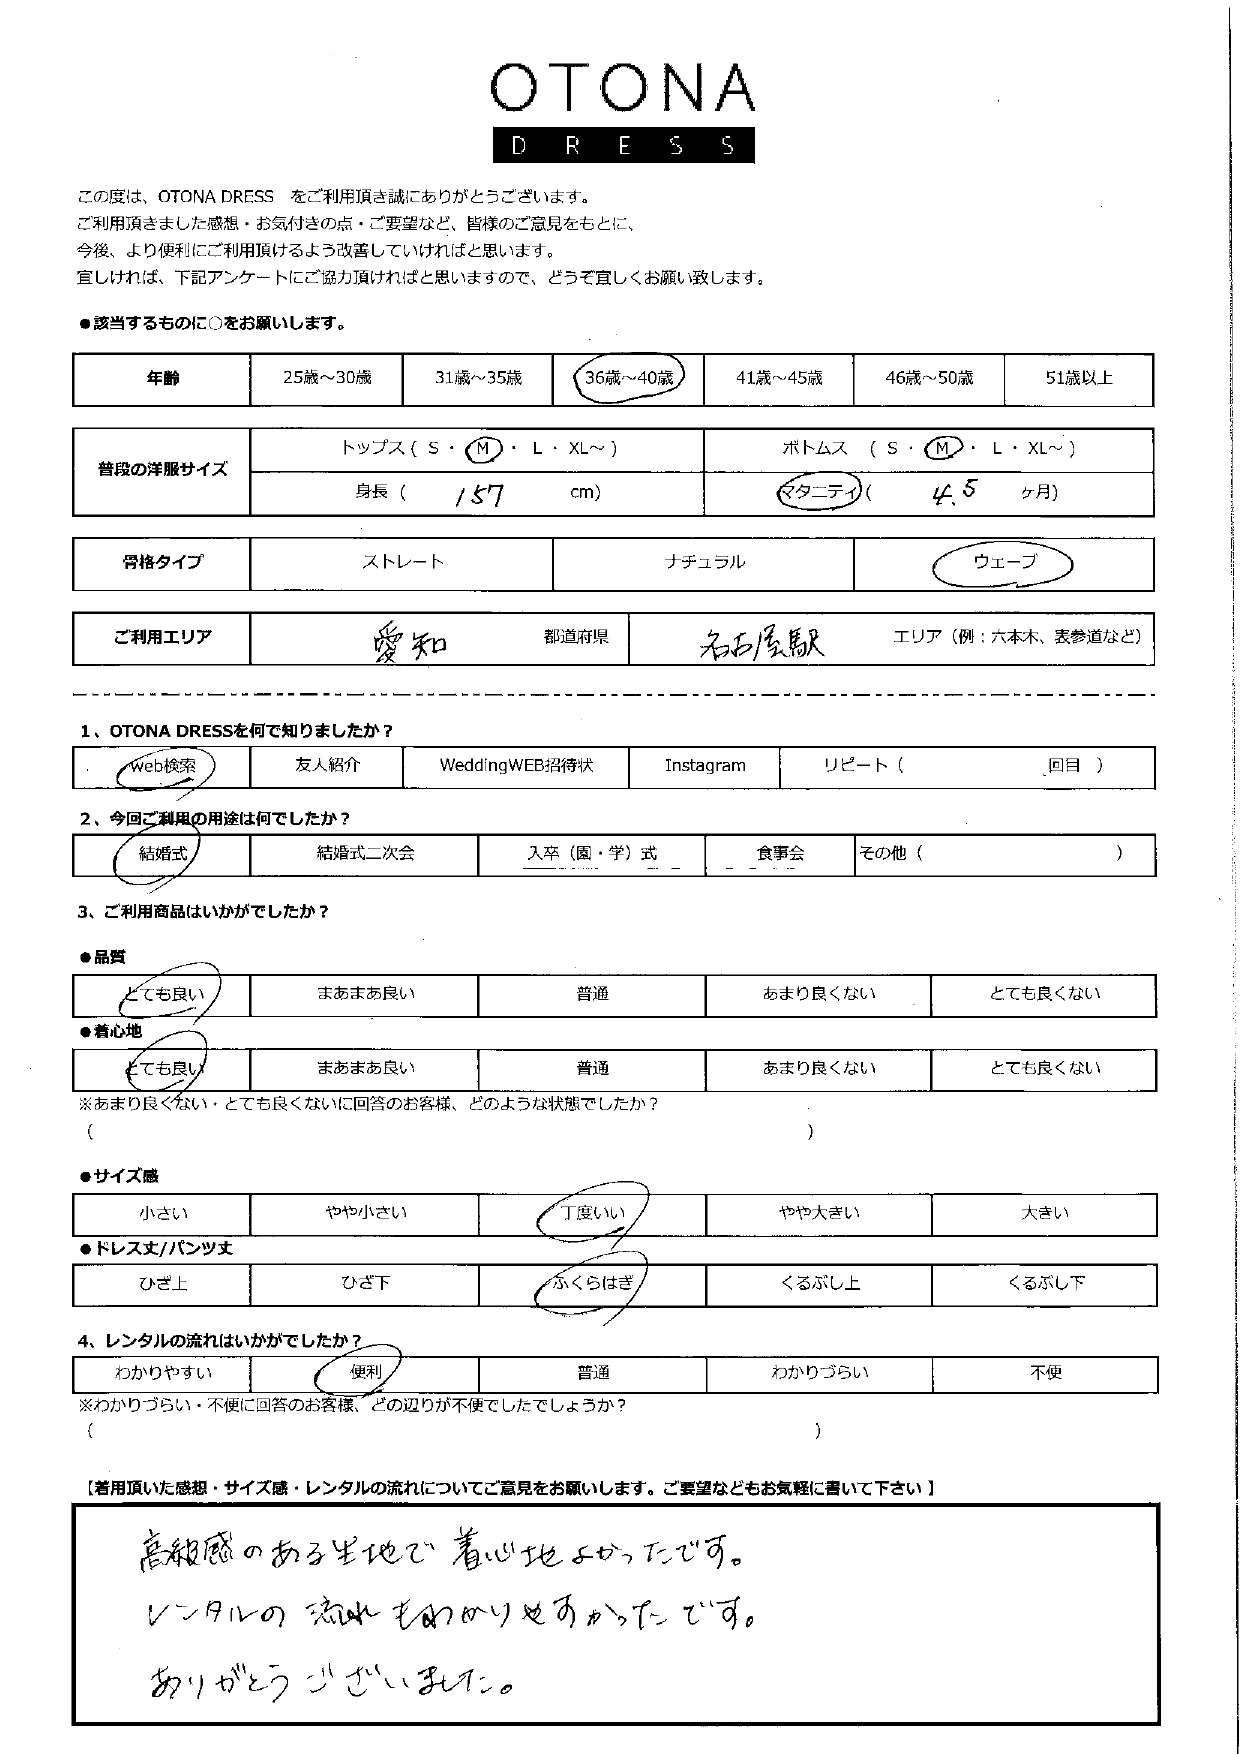 OTONA
DRESS
この度は、OTONA DRESS　をご利用頂き誠にありがとうございます。
ご利用頂きました感想・お気付きの点・ご要望など、皆様のご意見をもとに、
今後、より便利にご利用頂けるよう改善していければと思います。
宜しければ、下記アンケートにご協力頂ければと思いますので、どうぞ宜しくお願い致します。
●該当するものに○をお願いします。
年齢 25歳～30歳 31歳～35歳 36歳～40歳 41歳～45歳 46歳～50歳 51歳以上
普段の洋服サイズ トップス ( S ・ M ・ L ・ XL～ ) ボトムス ( S ・ M ・ L ・ XL～ )
身長 ( 157 cm) マタニティ ( 4.5 ヶ月)
骨格タイプ ストレート ナチュラル ウェーブ
ご利用エリア 愛知 都道府県 名古屋駅 エリア（例：六本木、表参道など）
1、OTONA DRESSを何で知りましたか？
Web検索 友人紹介 WeddingWEB招待状 Instagram リピート ( 回目 )
2、今回ご利用の用途は何でしたか？
結婚式 結婚式二次会 入卒（園・学）式 食事会 その他 ( )
3、ご利用商品はいかがでしたか？
●品質
とても良い まあまあ良い 普通 あまり良くない とても良くない
●着心地
とても良い まあまあ良い 普通 あまり良くない とても良くない
※あまり良くない・とても良くないに回答のお客様、どのような状態でしたか？
( )
●サイズ感
小さい やや小さい 丁度いい やや大きい 大きい
●ドレス丈/パンツ丈
ひざ上 ひざ下 ふくらはぎ くるぶし上 くるぶし下
4、レンタルの流れはいかがでしたか？
わかりやすい 便利 普通 わかりづらい 不便
※わかりづらい・不便に回答のお客様、どの辺りが不便でしたでしょうか？
( )
【着用頂いた感想・サイズ感・レンタルの流れについてご意見をお願いします。ご要望などもお気軽に書いて下さい】
高級感のある生地で着心地よかったです。
レンタルの流れもわかりやすかったです。
ありがとうございました。